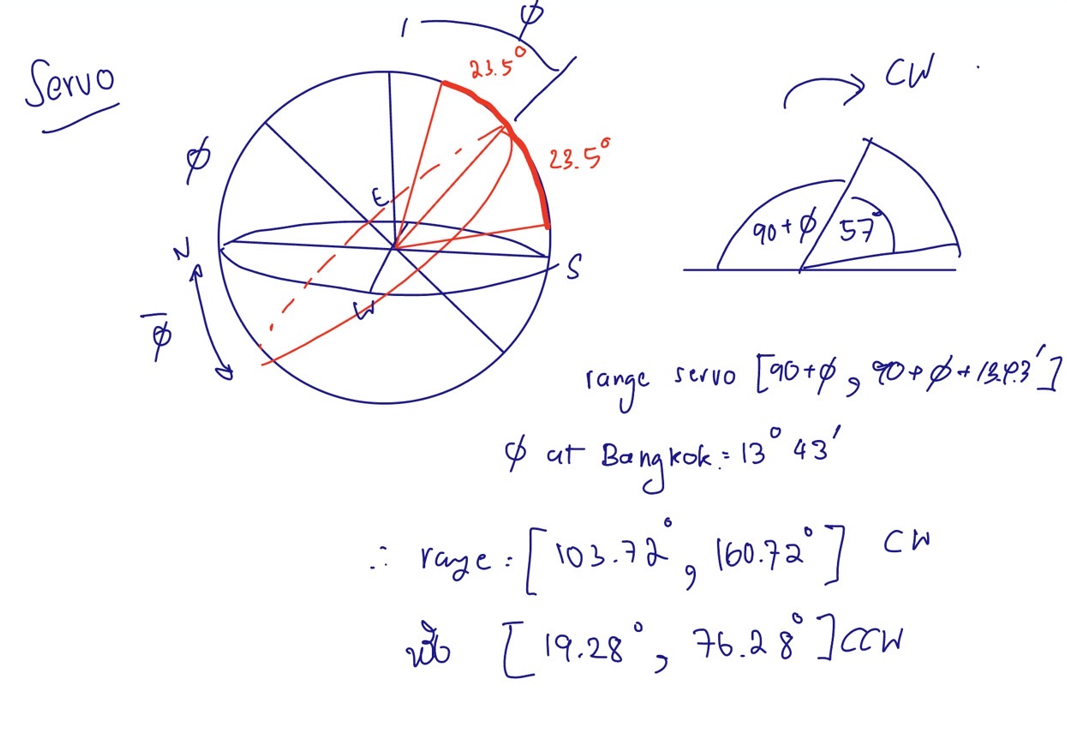 Servo
φ
23.5°
23.5°
φ
E
N
S
W
φ̄
CW
90+φ
57°
range servo [90+φ, 90+φ+13.43′]
φ at Bangkok = 13° 43′
∴ range = [103.72°, 160.72°] CW
หรือ [19.28°, 76.28°] CCW